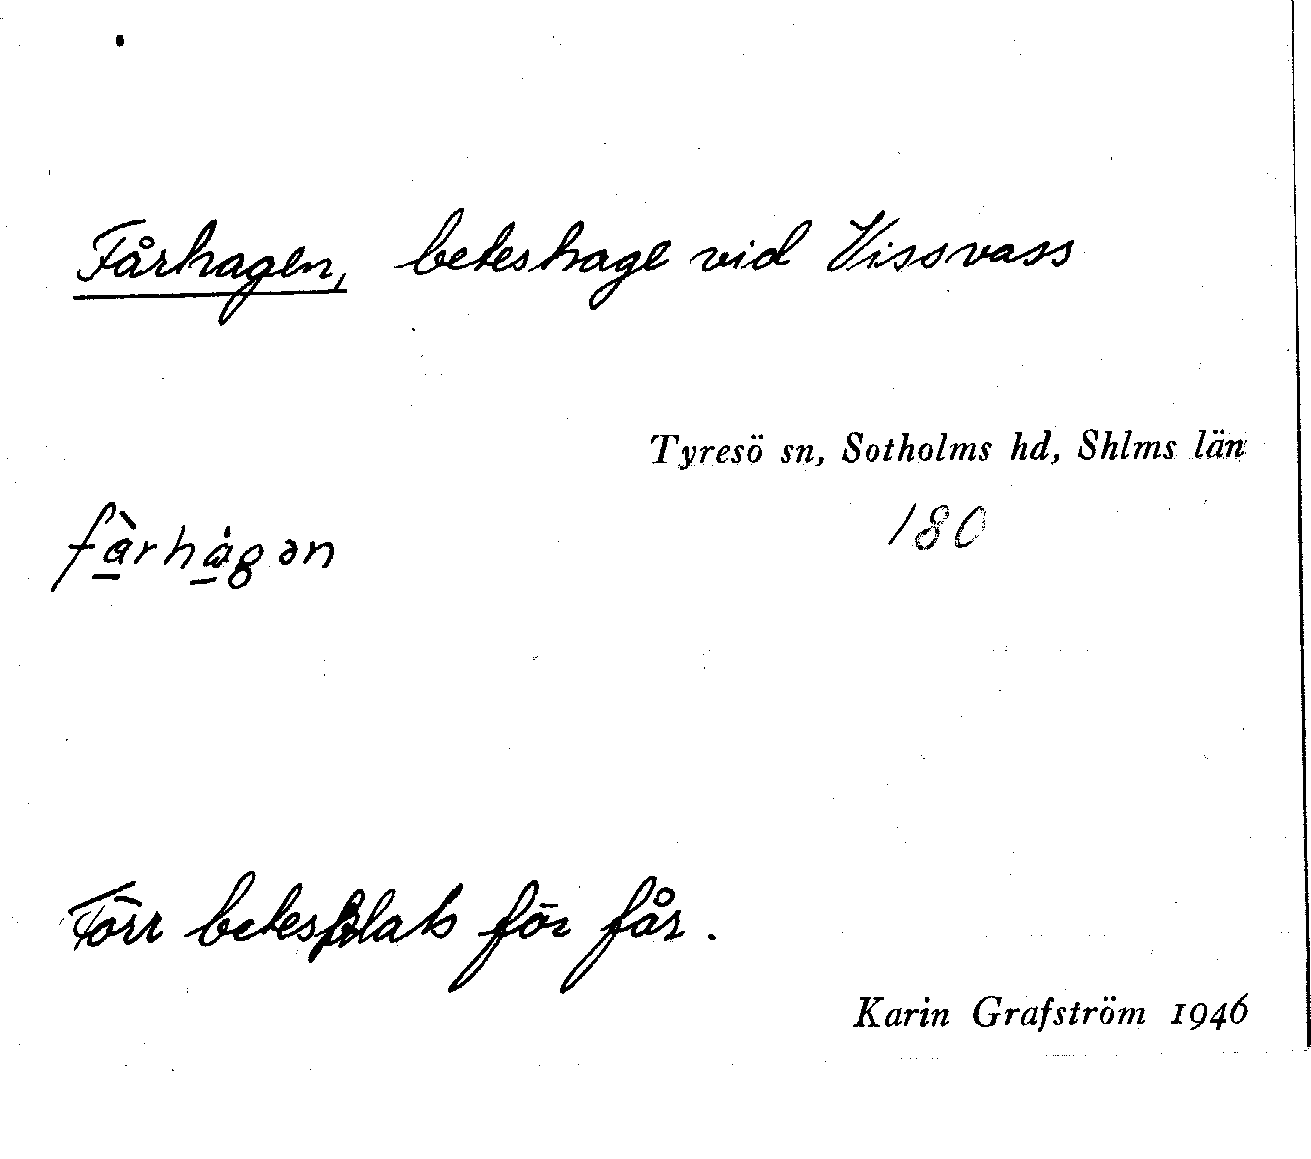 Fårhagen, beteshage vid Vissvass
Tyresö sn, Sotholms hd, Shlms län
180
Förr betesplats för får.
Karin Grafström 1946